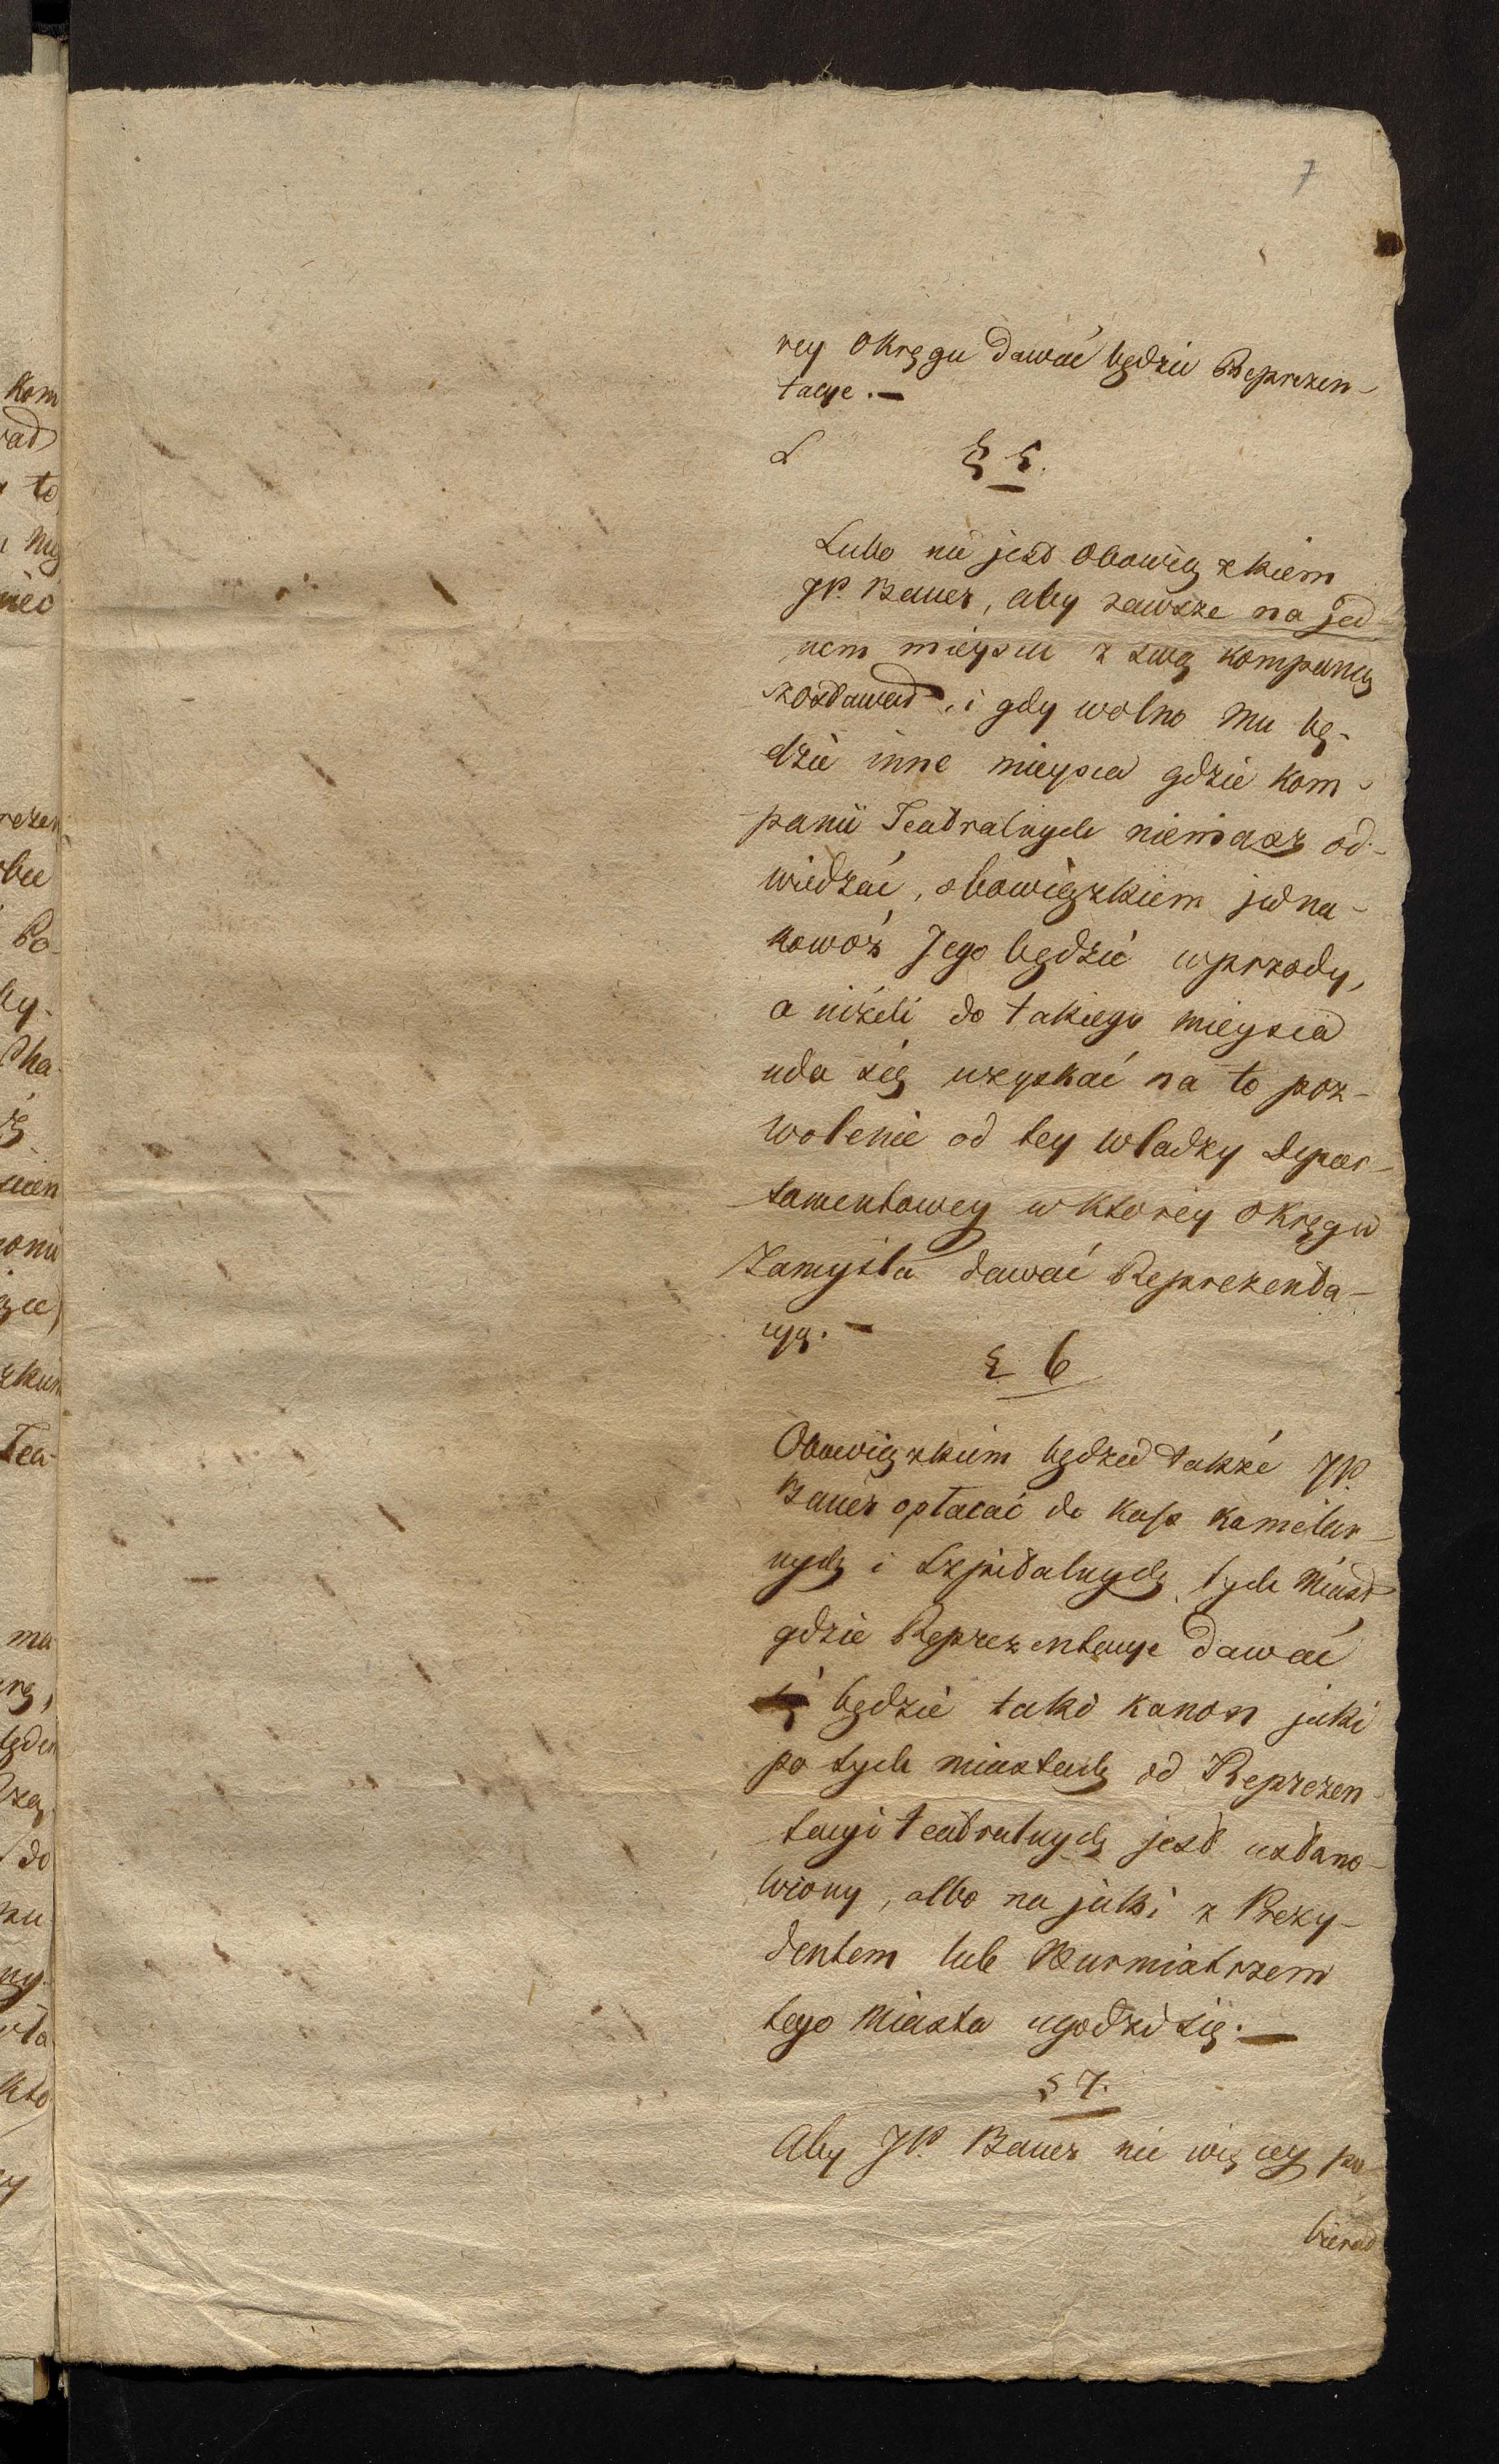 7
rey okręgu dawać będzie Reprezen-
tacye. —
L § 5.
Lubo nie jest obowiązkiem
JP. Bauer, aby zawsze na jed-
nem mieyscu z swą kompanią
zostawał, i gdy wolno mu bę-
dzie inne mieysca gdzie kom-
panii Teatralnych niemasz od-
wiedzać, obowiązkiem jedna-
kowoż Jego będzie wprzody,
a niżeli do takiego mieysca
uda się uzyskać na to poz-
wolenie od tey władzy Depar-
tamentowey w ktorey okręgu
zamyśla dawać Reprezenta-
cyą. —
§ 6
Obowiązkiem będzie także JP.
Bauer opłacać do kass kamelar-
nych i Szpitalnych tych Miast
gdzie Reprezentacye dawać
będzie taki kanon jaki
po tych miastach od Reprezen-
tacyi teatralnych jest ustano-
wiony, albo na jaki z Prezy-
dentem lub Burmistrzem
tego Miasta ugodzi się. —
§ 7.
Aby JP. Bauer nie więcey po-
bierał